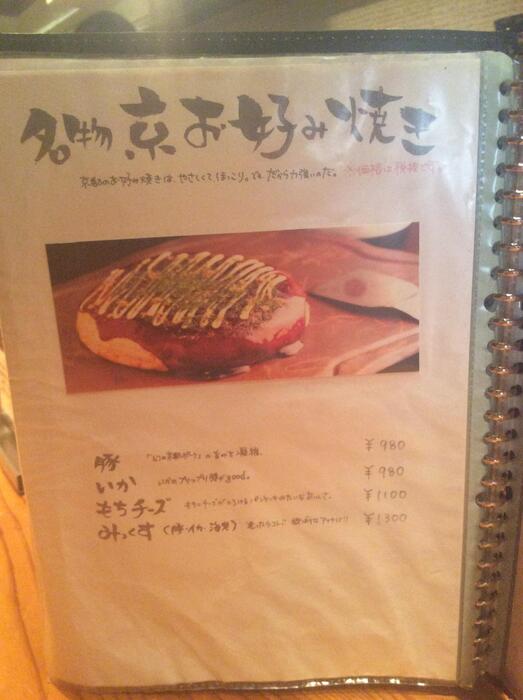 名物 京お好み焼き
京都のお好み焼きは、やさしくて ほっこり。でも だから力強いのだ。 ※価格は税抜です。
豚 ¥980
いか いかのプリップリ感がgood。 ¥980
もちチーズ ¥1100
みっくす (豚・イカ・海老) ¥1300